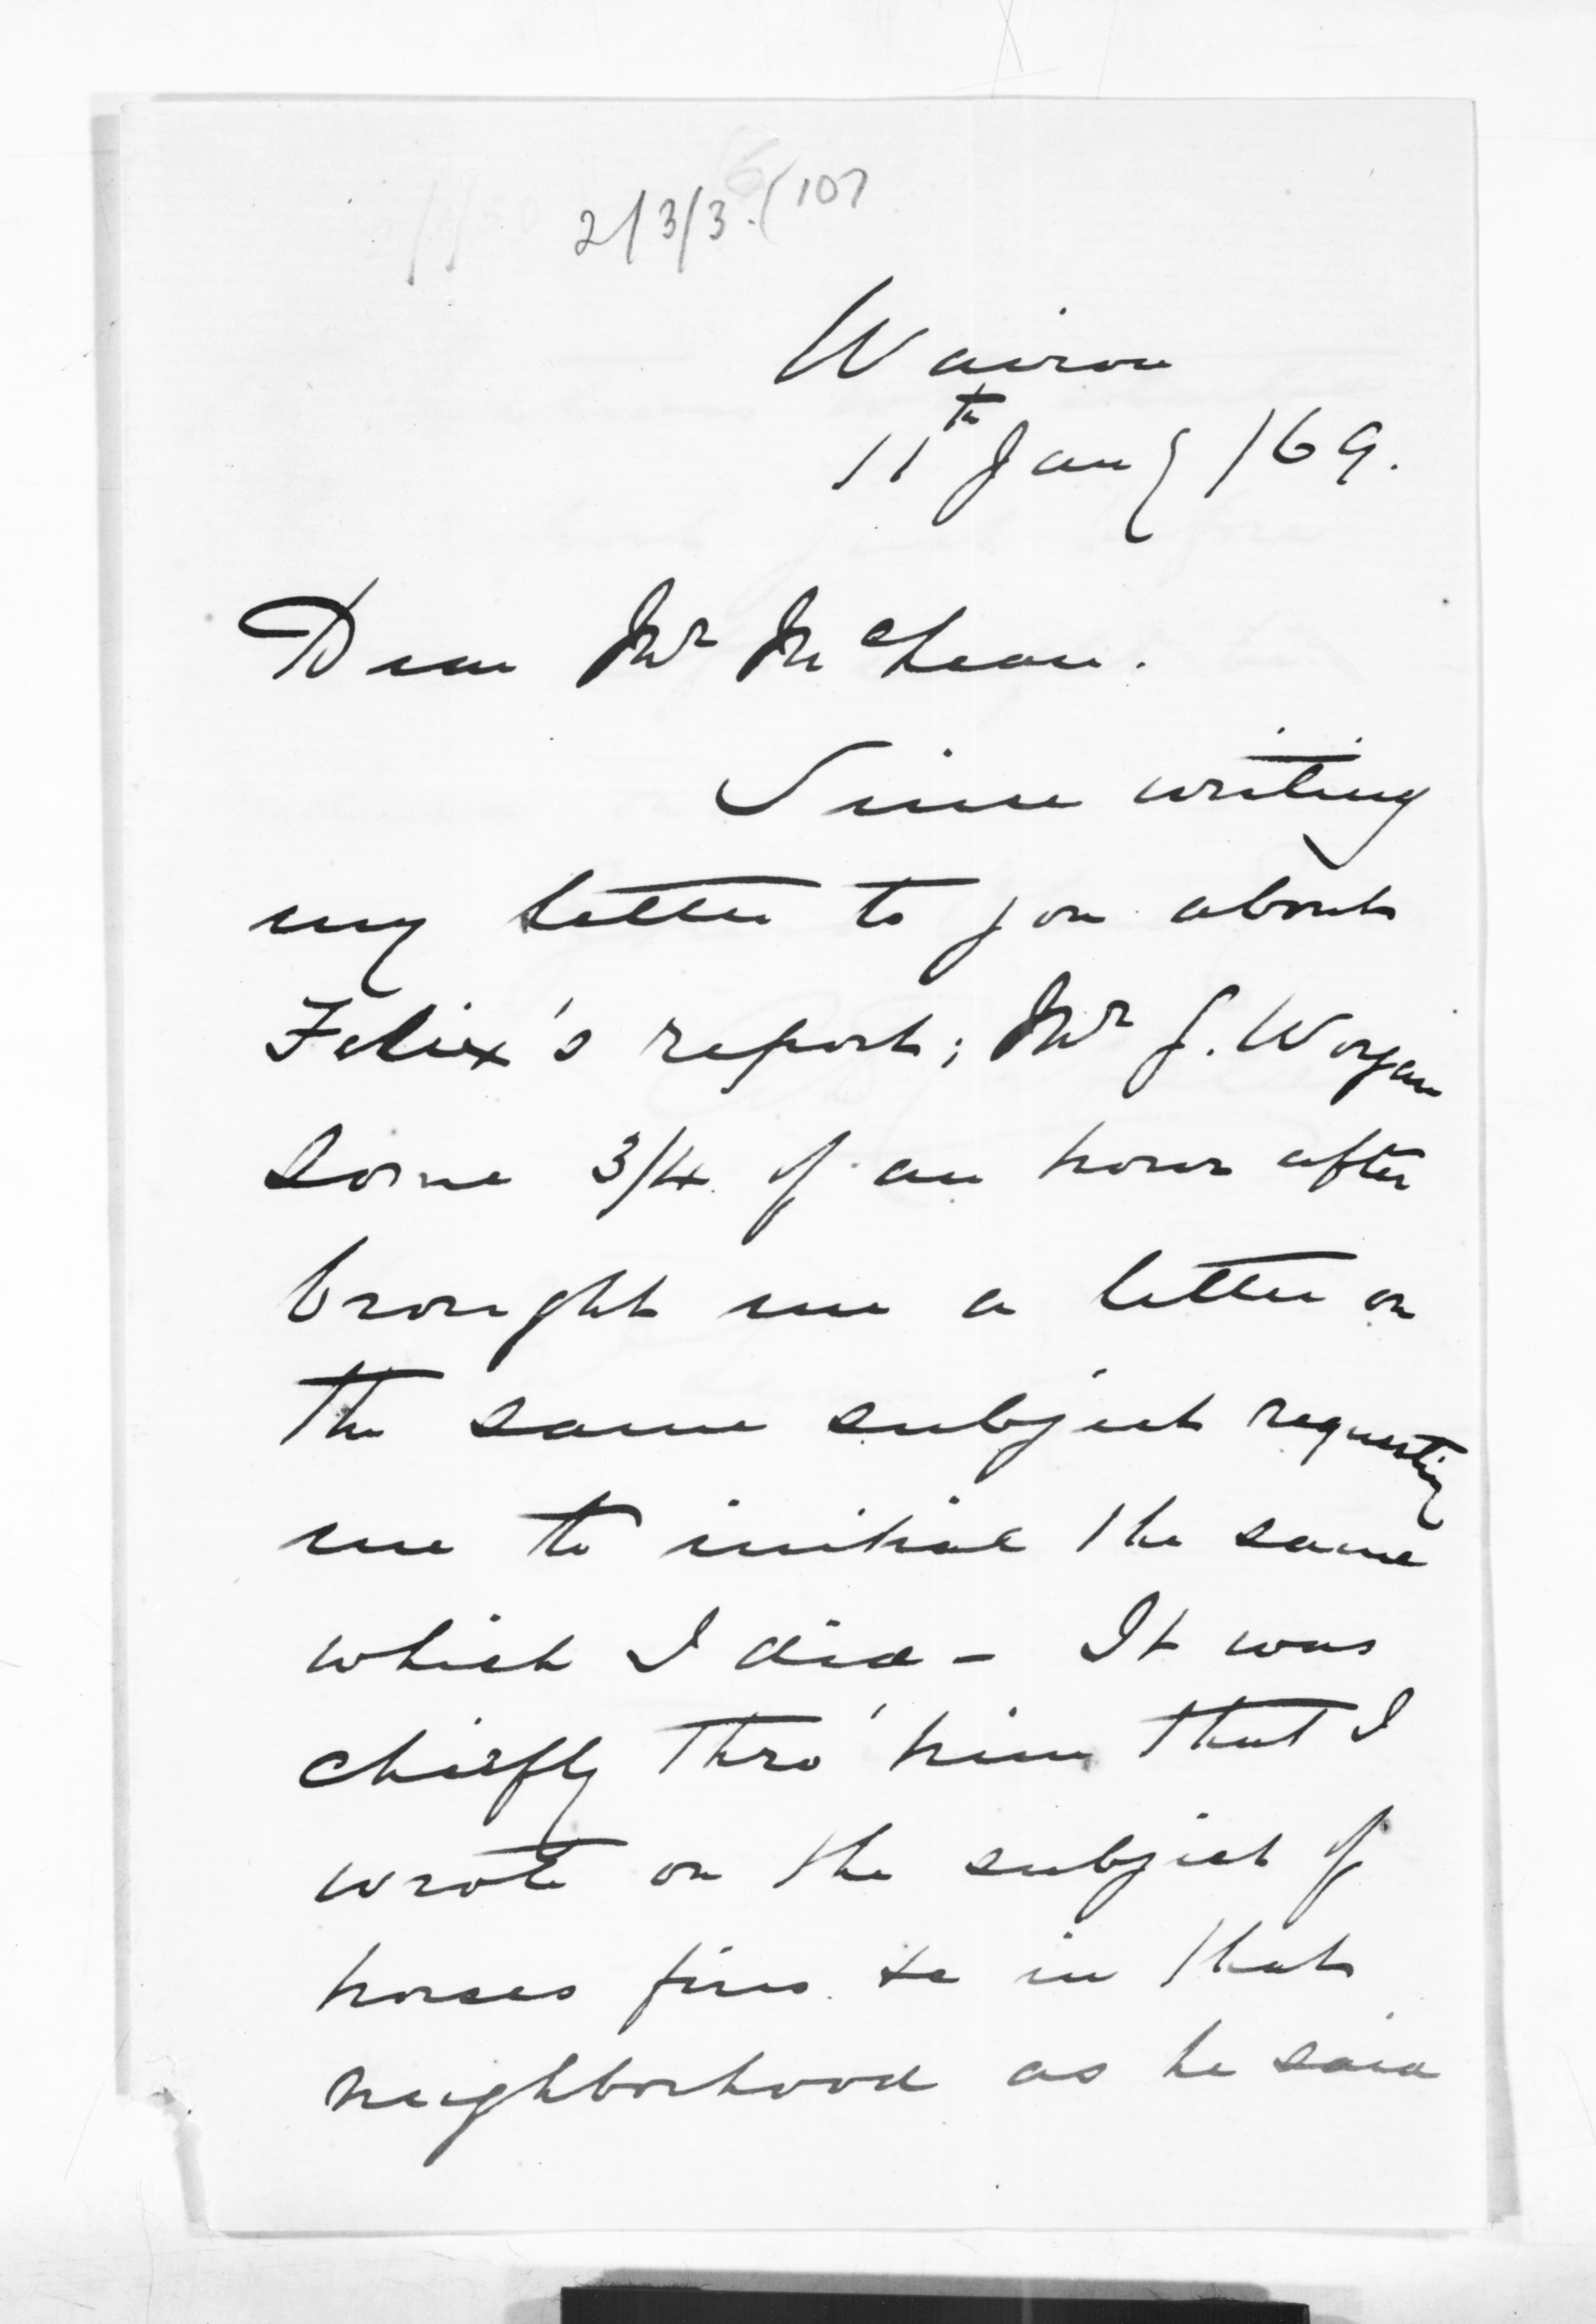 2/3/3. (107
Wairoa
11th Jany /69.
Dear Mr McLean.
Since writing
my letter to you about
Felix's report; Mr J. Worgan
some 3/4 of an hour after
brought me a letter on
the same subject requesting
me to initial the same
which I did - It was
chiefly thro' him that I
wrote on the subject of
horses fires &c in that
neighborhood as he said